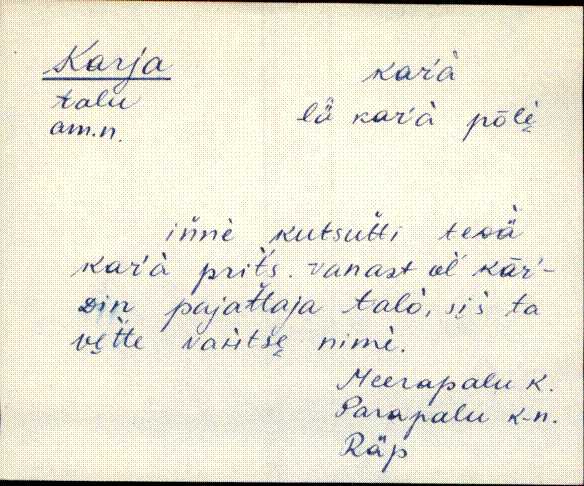 Karja
talu
am.n.
kaŕà
lǟ kaŕà pōlè̬
ińnè kutsut̆ti teдä
kaŕà prit̆s. vanast ol̆ kāŕ-
Din pajat̆taja talò, si̬s ta
ve̬t̆te vaŕitse̬ nimè.
Meerapalu k.
Parapalu k-n.
Räp